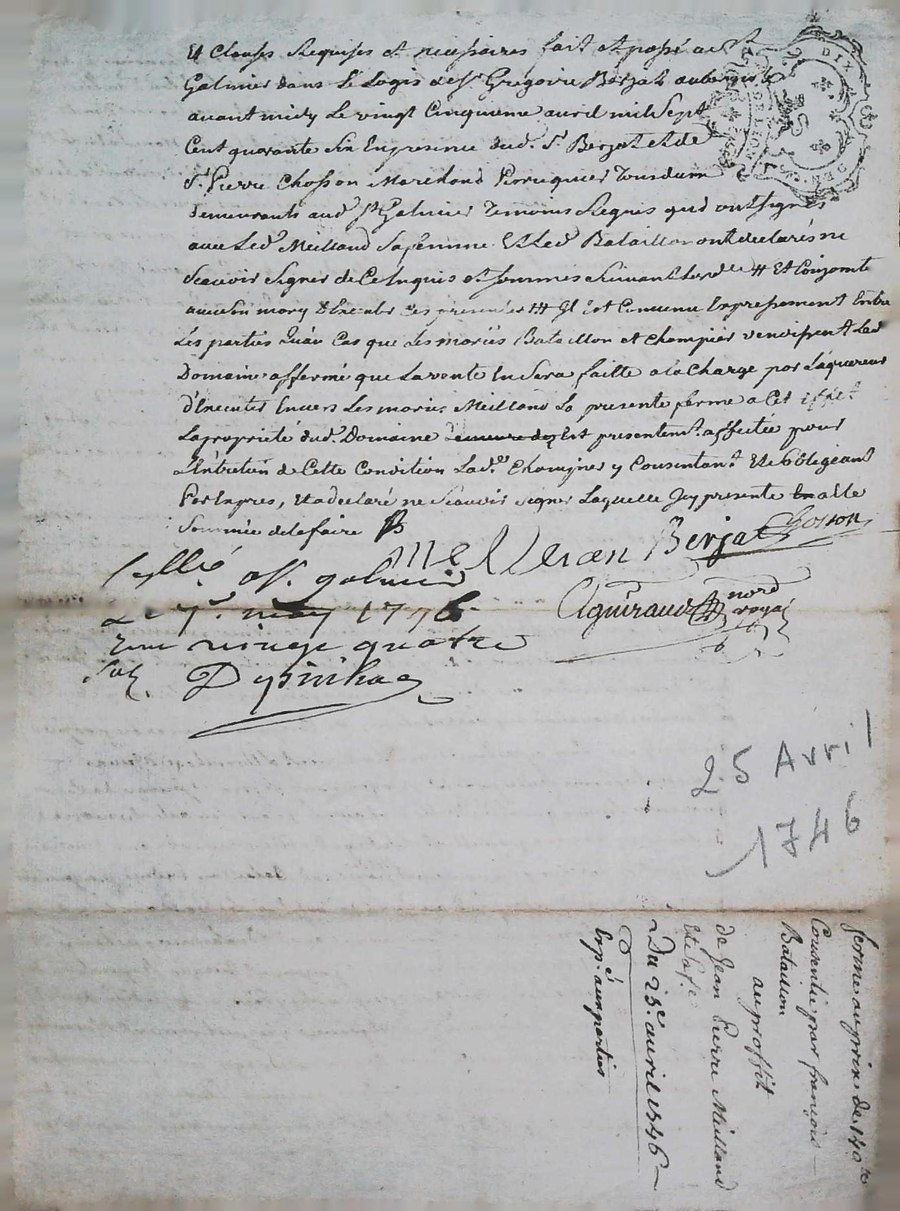 et Clauses Requises et necessaires fait et passé a St
Galmier dans Le Logis de Sr Gregoire Berjat aubergiste
avant midy Le vingt Cinquieme avril mil Sept
Cent quarante Six En presence dud. Sr Berjat et de
Sr Pierre Chosson Marchand Perruquier
demeurants aud. St Galmier Temoins Requis qui ont Signés
avec Led. Meilland Sa femme et Led. Bataillon ont declarés ne
Scavoir Signer de Ce Enquis et Sommés Suivant # Et Conjointe
avec Son mary D'Executer Ces presentes ## Il Est Convenu Expressement Entre
Les parties Qu'au Cas que Les mariés Bataillon et Champier vendissent Led
Domaine affermé que La vente En Sera faitte a la Charge par L'aquereur
d'Executer Envers Les mariés Meilland La presente ferme a Cet Effet
La proprieté dud. Domaine Est presentemt. affectée pour
L'Entretien de Cette Condition Lad. y Consentant. et S'obligeant
Par Expres, Et a declaré ne Scavoir Signer Laquelle Icy presente a Elle
Sommée de le faire
Berjat Chosson
Aguiraud nord
royal
Scellé a St. galmier
Le 7e. may 1746
Recu vingt quatre
Sols
DIX
DEN.
DE LION
25 Avril
1746
ferme au prix de 140 tt
Consentie par françois
Bataillon
au proffit
de Jean Pierre Meilland
Et de Sa fe.
Du 25e. avril 1746
Exp. aux parties